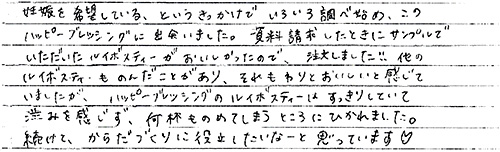 妊娠を希望している、というきっかけで いろいろ調べ始め、この
ハッピーブレッシングに出会いました。資料請求したときにサンプルで
いただいたルイボスティーがおいしかったので、注文しました!! 他の
ルイボスティーものんだことがあり、それもわりとおいしいと感じて
いましたが、ハッピーブレッシングのルイボスティーは すっきりしていて
渋みを感じず、何杯ものめてしまうところにひかれました。
続けて、からだづくりに役立したいなーと思っています♡